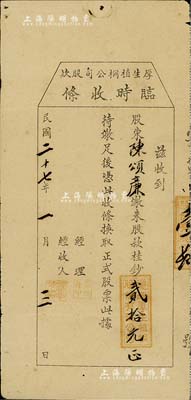 厚生植桐公司股款
臨時收條
茲收到
股東陳頌廉繳來股款桂鈔貳拾元正
持繳足後憑此收條換取正式股票此據
經理
經收人
民國二十七年一月三日
壹拾
號
上海陽明拍卖